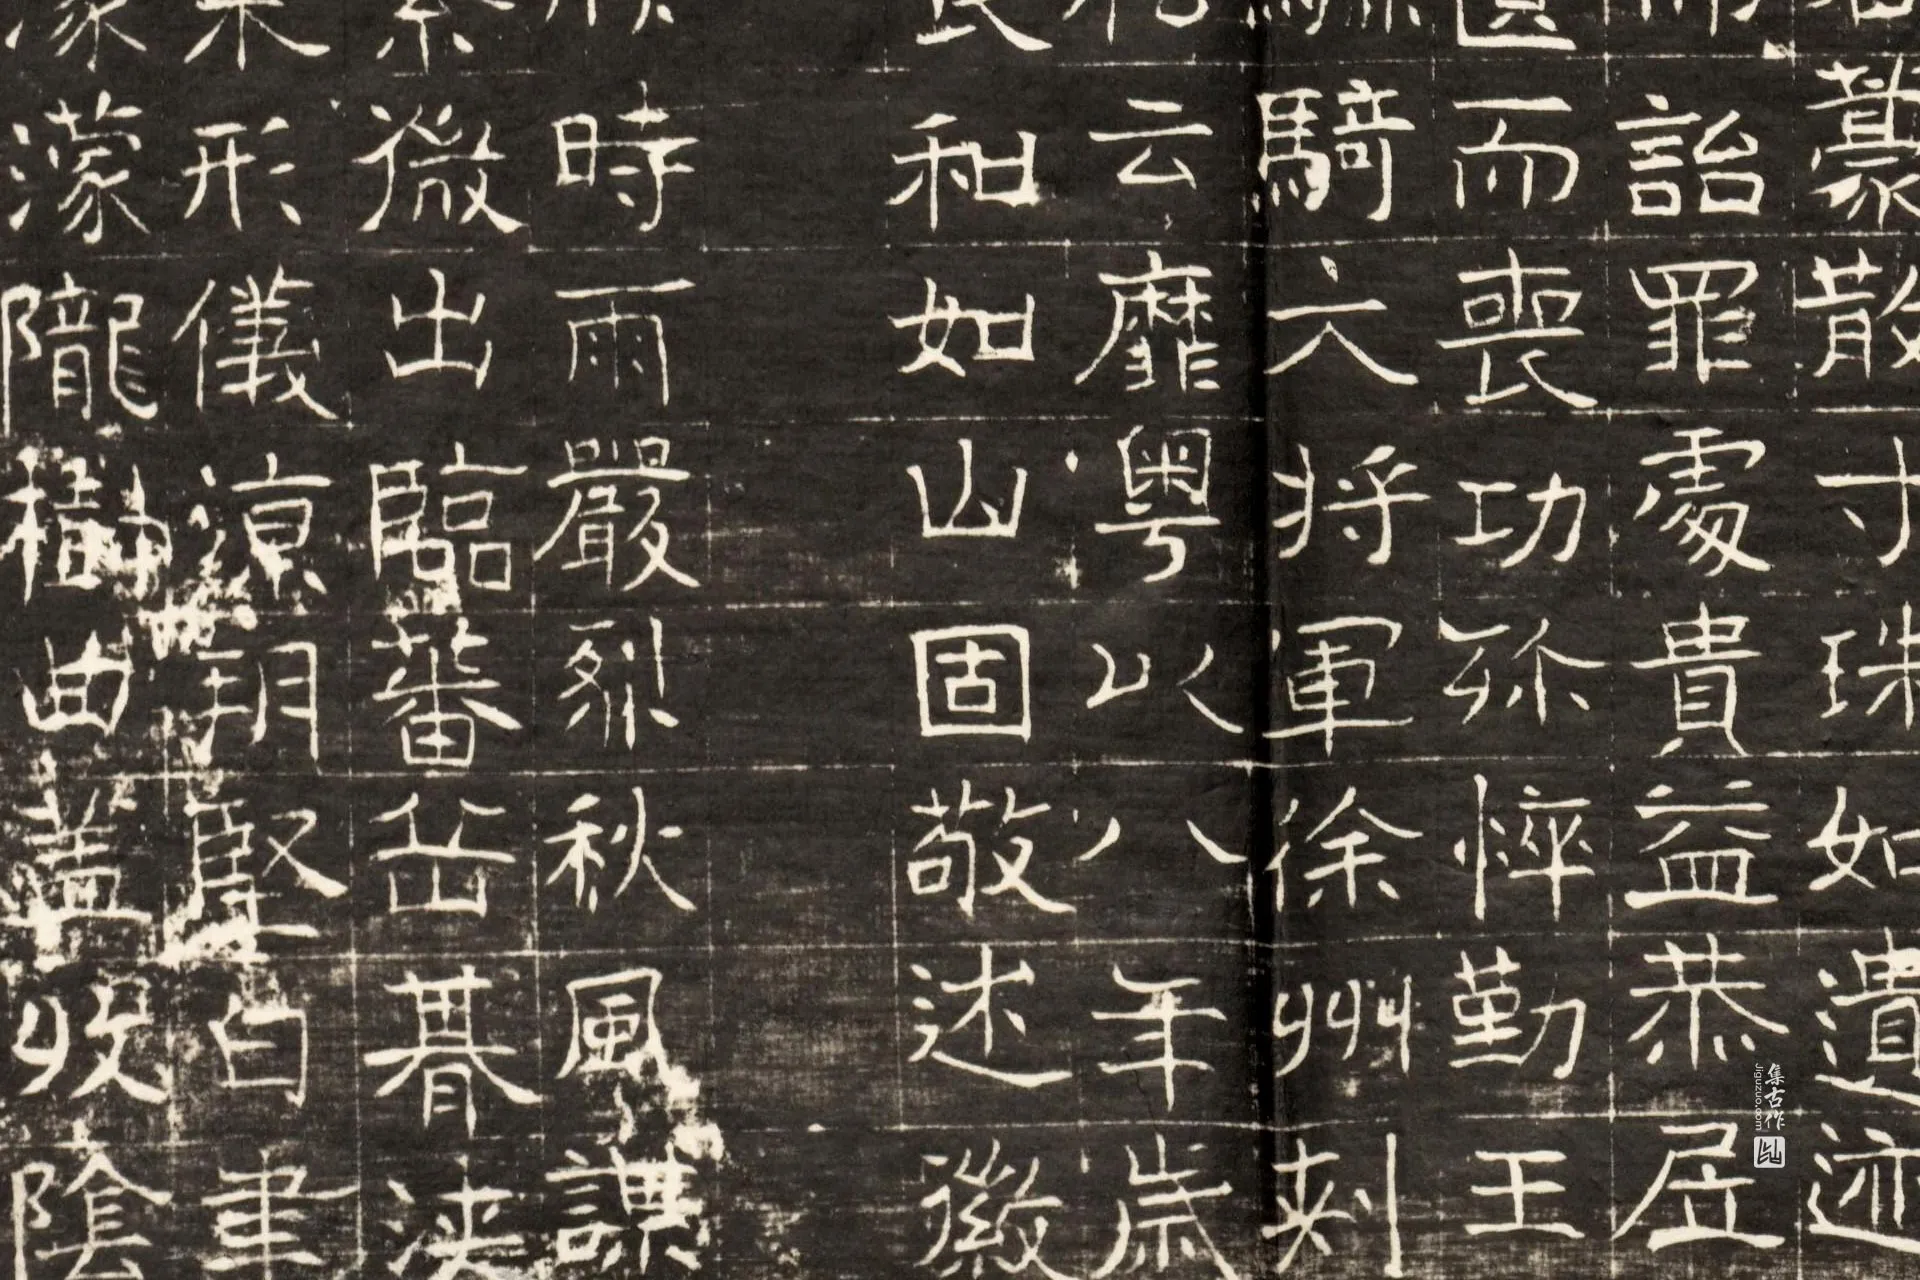 藂散寸珠如遺迹
詣罪處貴益恭居
而喪功弥悴勤王
騎大將軍徐州刺
云靡粵以八年歲
民和如山固敬述徽
時雨嚴烈秋風謀
微出臨蕃岳暮浹
形儀涼朔堅白聿
濛隴樹曲蓋收陰
集古作
Jiguzuo.com